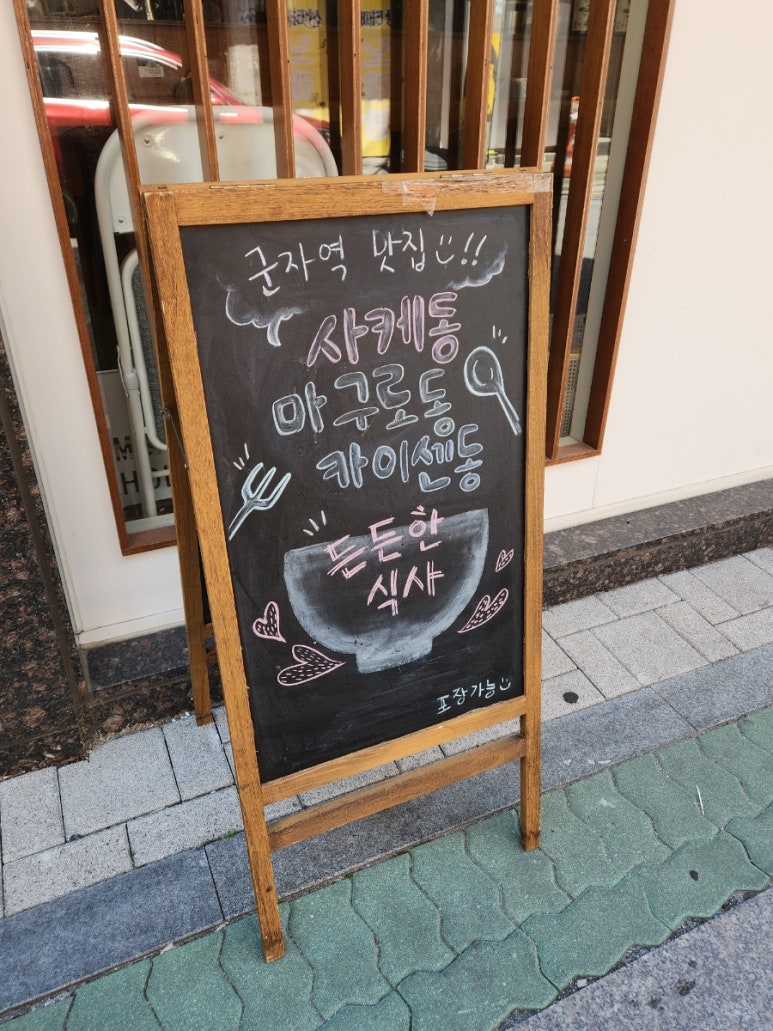 군자역 맛집!!
사케동
마구로동
카이센동
든든한
식사
포장가능